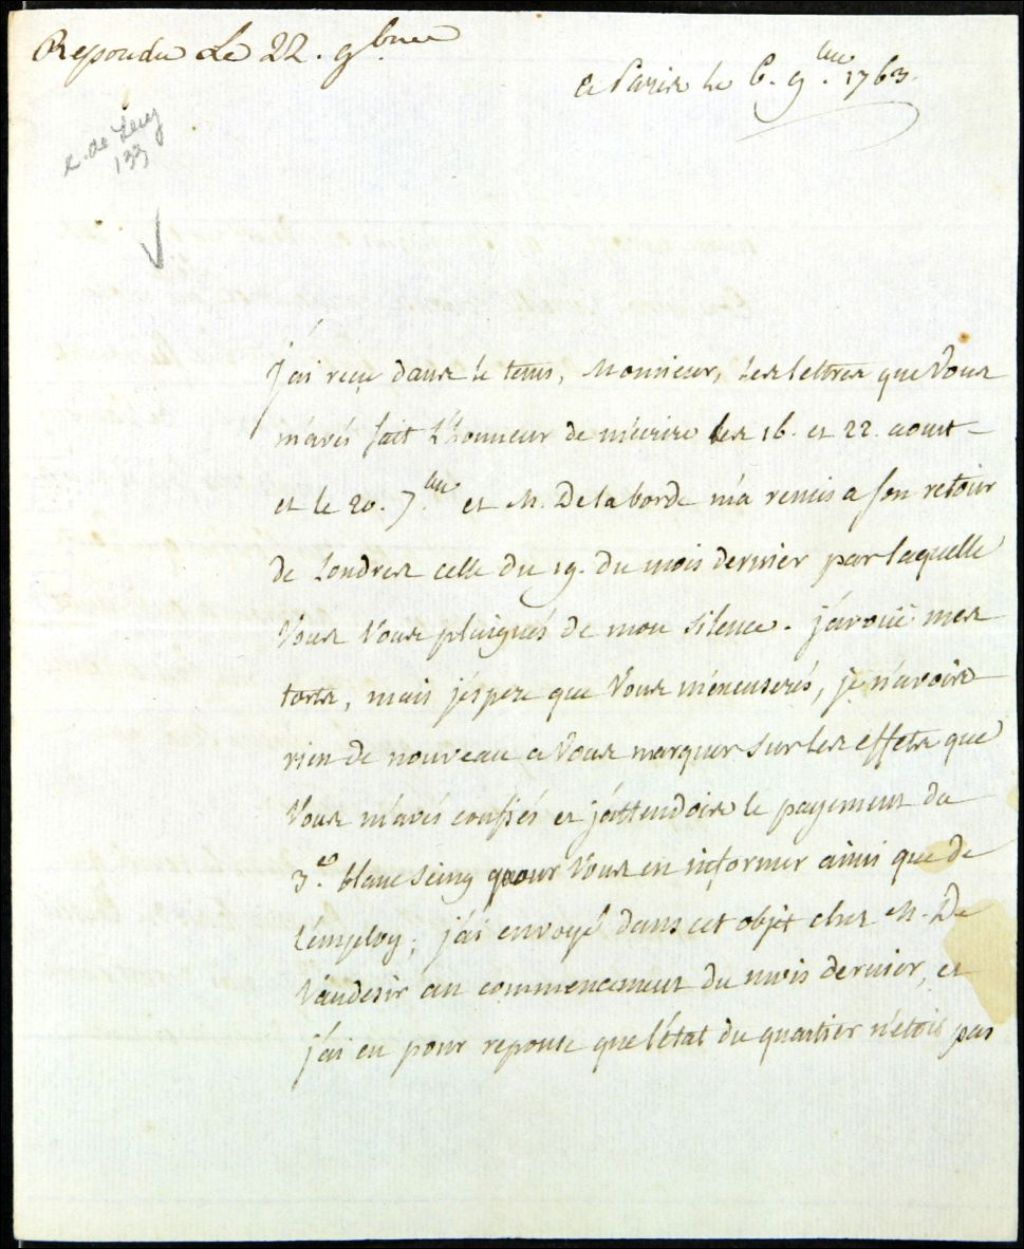 Repondu Le 22. 9.bre
a Paris le 6. 9.bre 1763.
133
J'ai reçu dans le tems, Monsieur, les lettres que Vous
m'avés fait L'honneur de m'ecrire les 16. et 22. aoust
et le 20. 7.bre et M. De la borde m'a remis a son retour
de Londres celle du 19. du mois dernier par laquelle
Vous Vous plaignés de mon silence. j'avoüe mes
torts, mais j'espere que Vous m'excuserés, je n'avois
rien de nouveau a Vous marquer sur les effets que
Vous m'avés confiés et j'attendois le payement du
3.e blanc seing pour Vous en informer ainsi que de
L'employ; j'ai envoyé dans cet objet chez M. De
Vaudesir au commencement du mois dernier, et
j'ai eu pour reponse que l'état du quartier n'etoit pas